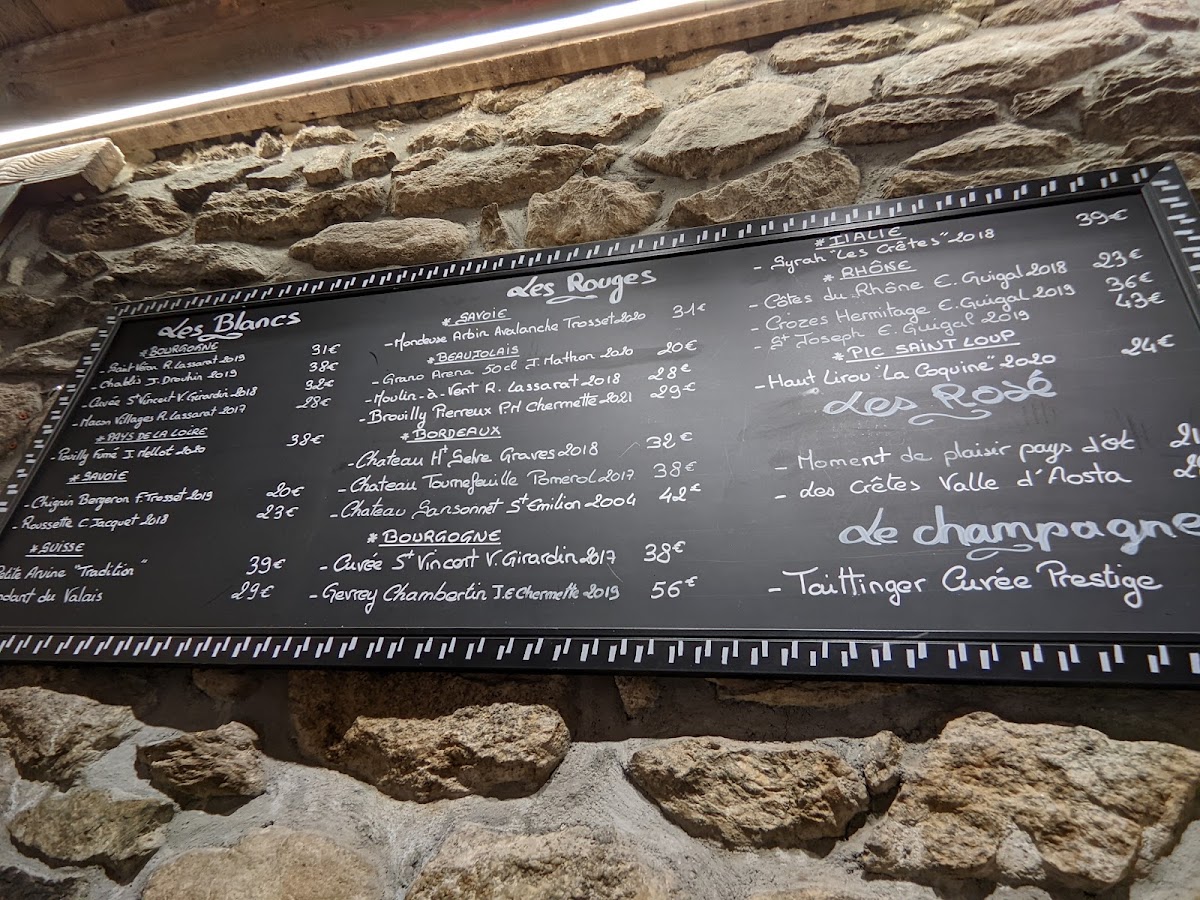 Les Blancs
* BOURGOGNE
- Saint Véran R. Lassarat 2019 31€
- Chablis J. Drouhin 2019 38€
- Cuvée St Vincent V. Girardin 2018 32€
- Macon Villages R. Lassarat 2017 28€
* PAYS DE LA LOIRE
- Pouilly Fumé J. Mellot 2020 38€
* SAVOIE
- Chignin Bergeron F. Trosset 2019 20€
- Roussette C. Jacquet 2018 23€
* SUISSE
Petite Arvine "Tradition" 39€
ndant du Valais 29€
Les Rouges
* SAVOIE
- Mondeuse Arbin Avalanche Trosset 2020 31€
* BEAUJOLAIS
- Grano Arena 50cl J. Mathon 2020 20€
- Moulin-à-Vent R. Lassarat 2018 28€
- Brouilly Pierreux P.M Chermette 2021 29€
* BORDEAUX
- Chateau Ht Selve Graves 2018 32€
- Chateau Tournefeuille Pomerol 2017 38€
- Chateau Sansonnet St Emilion 2004 42€
* BOURGOGNE
- Cuvée St Vincent V. Girardin 2017 38€
- Gevrey Chambertin J.E Chermette 2019 56€
* ITALIE
- Syrah "Les Crêtes" 2018 39€
* RHÔNE
- Côtes du Rhône E. Guigal 2018 23€
- Crozes Hermitage E. Guigal 2019 36€
- St Joseph E. Guigal 2019 43€
* PIC SAINT LOUP
- Haut Lirou "La Coquine" 2020 24€
Les Rosé
- Moment de plaisir pays d'oc
- des Crêtes Valle d'Aosta
Le champagne
- Taittinger Cuvée Prestige